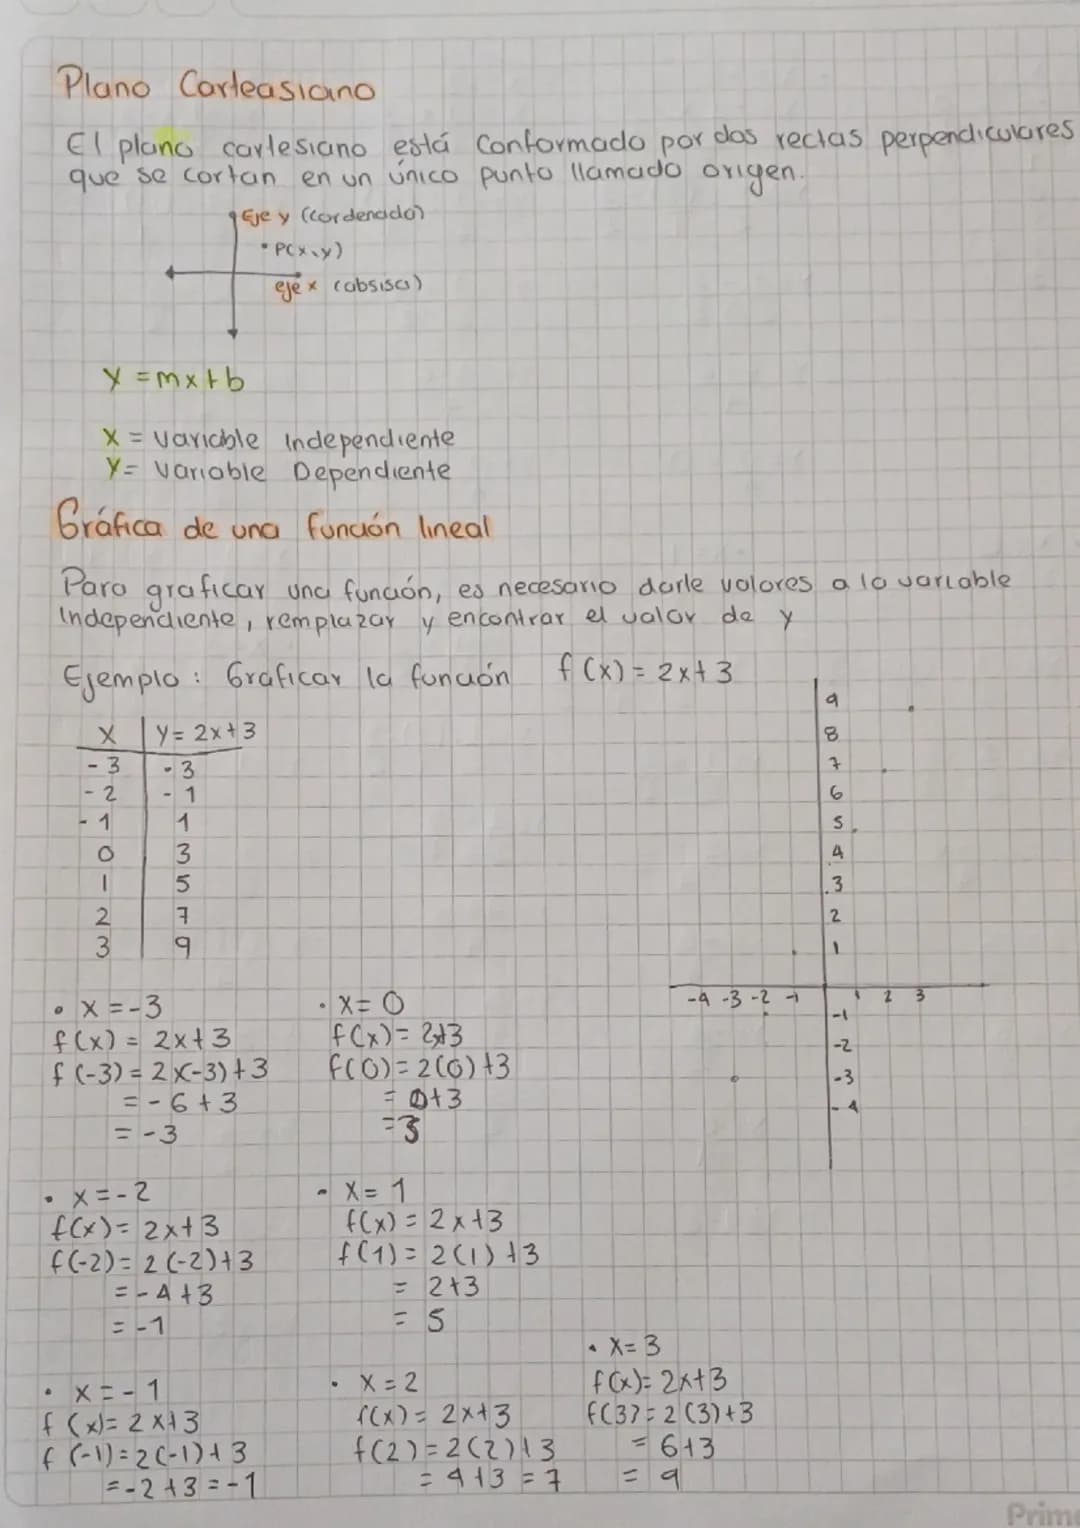 Plano Carteasiano
El plano cartesiano está conformado por dos rectas perpendiculares
que se cortan en un único punto llamado origen.
Eje y (cordenada)
• P(x,y)
eje x (absisa)
y = mx+b
X = variable Independiente
Y = Variable Dependiente
Gráfica de una función lineal
Para graficar una función, es necesario darle valores a la variable
Independiente, remplazar y encontrar el valor de y
Ejemplo: Graficar la función f(x) = 2x+3
X | Y= 2x+3
-3 | -3
-2 | -1
-1 | 1
0 | 3
1 | 5
2 | 7
3 | 9
9
8
7
6
5
4
3
2
1
-4 -3 -2 -1 1 2 3
-1
-2
-3
-4
• X = -3
f(x) = 2x+3
f(-3) = 2x(-3)+3
= -6+3
= -3
• X= 0
f(x) = 2x+3
f(0) = 2(0)+3
= 0+3
= 3
• X = -2
f(x) = 2x+3
f(-2) = 2(-2)+3
= -4+3
= -1
- X= 1
f(x) = 2x+3
f(1) = 2(1)+3
= 2+3
= 5
• X = -1
f(x) = 2x+3
f(-1) = 2(-1)+3
= -2+3 = -1
• X = 2
f(x) = 2x+3
f(2) = 2(2)+3
= 4+3 = 7
• X= 3
f(x) = 2x+3
f(3) = 2(3)+3
= 6+3
= 9